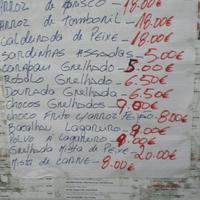 Arroz de Marisco - 18.00€
Arroz de Tamboril - 18.00€
Caldeirada de Peixe - 18.00€
Sardinhas Assadas - 5,00€
Carapau Grelhado - 5.00€
Robalo Grelhado - 6.50€
Dourada Grelhada - 6.50€
Chocos Grelhados - 9.00€
Choco Frito c/arroz Feijão - 8.00€
Bacalhau Lagareiro - 9.00€
Polvo A Lagareiro - 9.00€
Grelhada Mista de Peixe - 20.00€
Mista de Carne - 8.00€